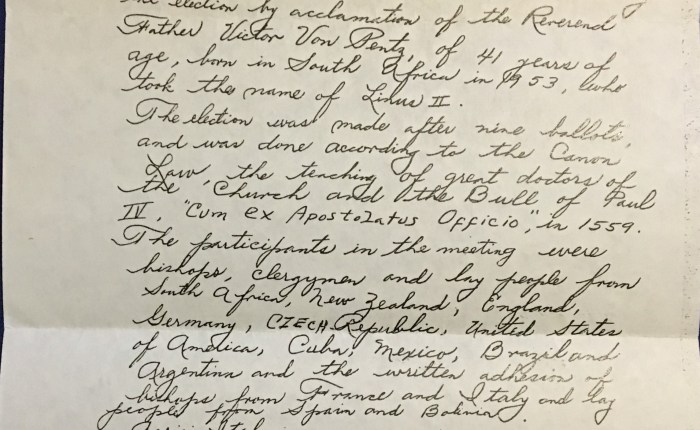 election by acclamation of the Reverend
Father Victor Von Pentz, of 41 years of
age, born in South Africa in 1953, who
took the name of Linus II.
The election was made after nine ballots,
and was done according to the Canon
Law, the teaching of great doctors of
the Church and the Bull of Paul
IV, "Cum ex Apostolatus Officio", in 1559.
The participants in the meeting were
bishops, clergymen and lay people from
South Africa, New Zealand, England,
Germany, CZECH Republic, United States
of America, Cuba, Mexico, Brazil and
Argentina and the written adhesion of
bishops from France and Italy and lay
people from Spain and Bolivia.